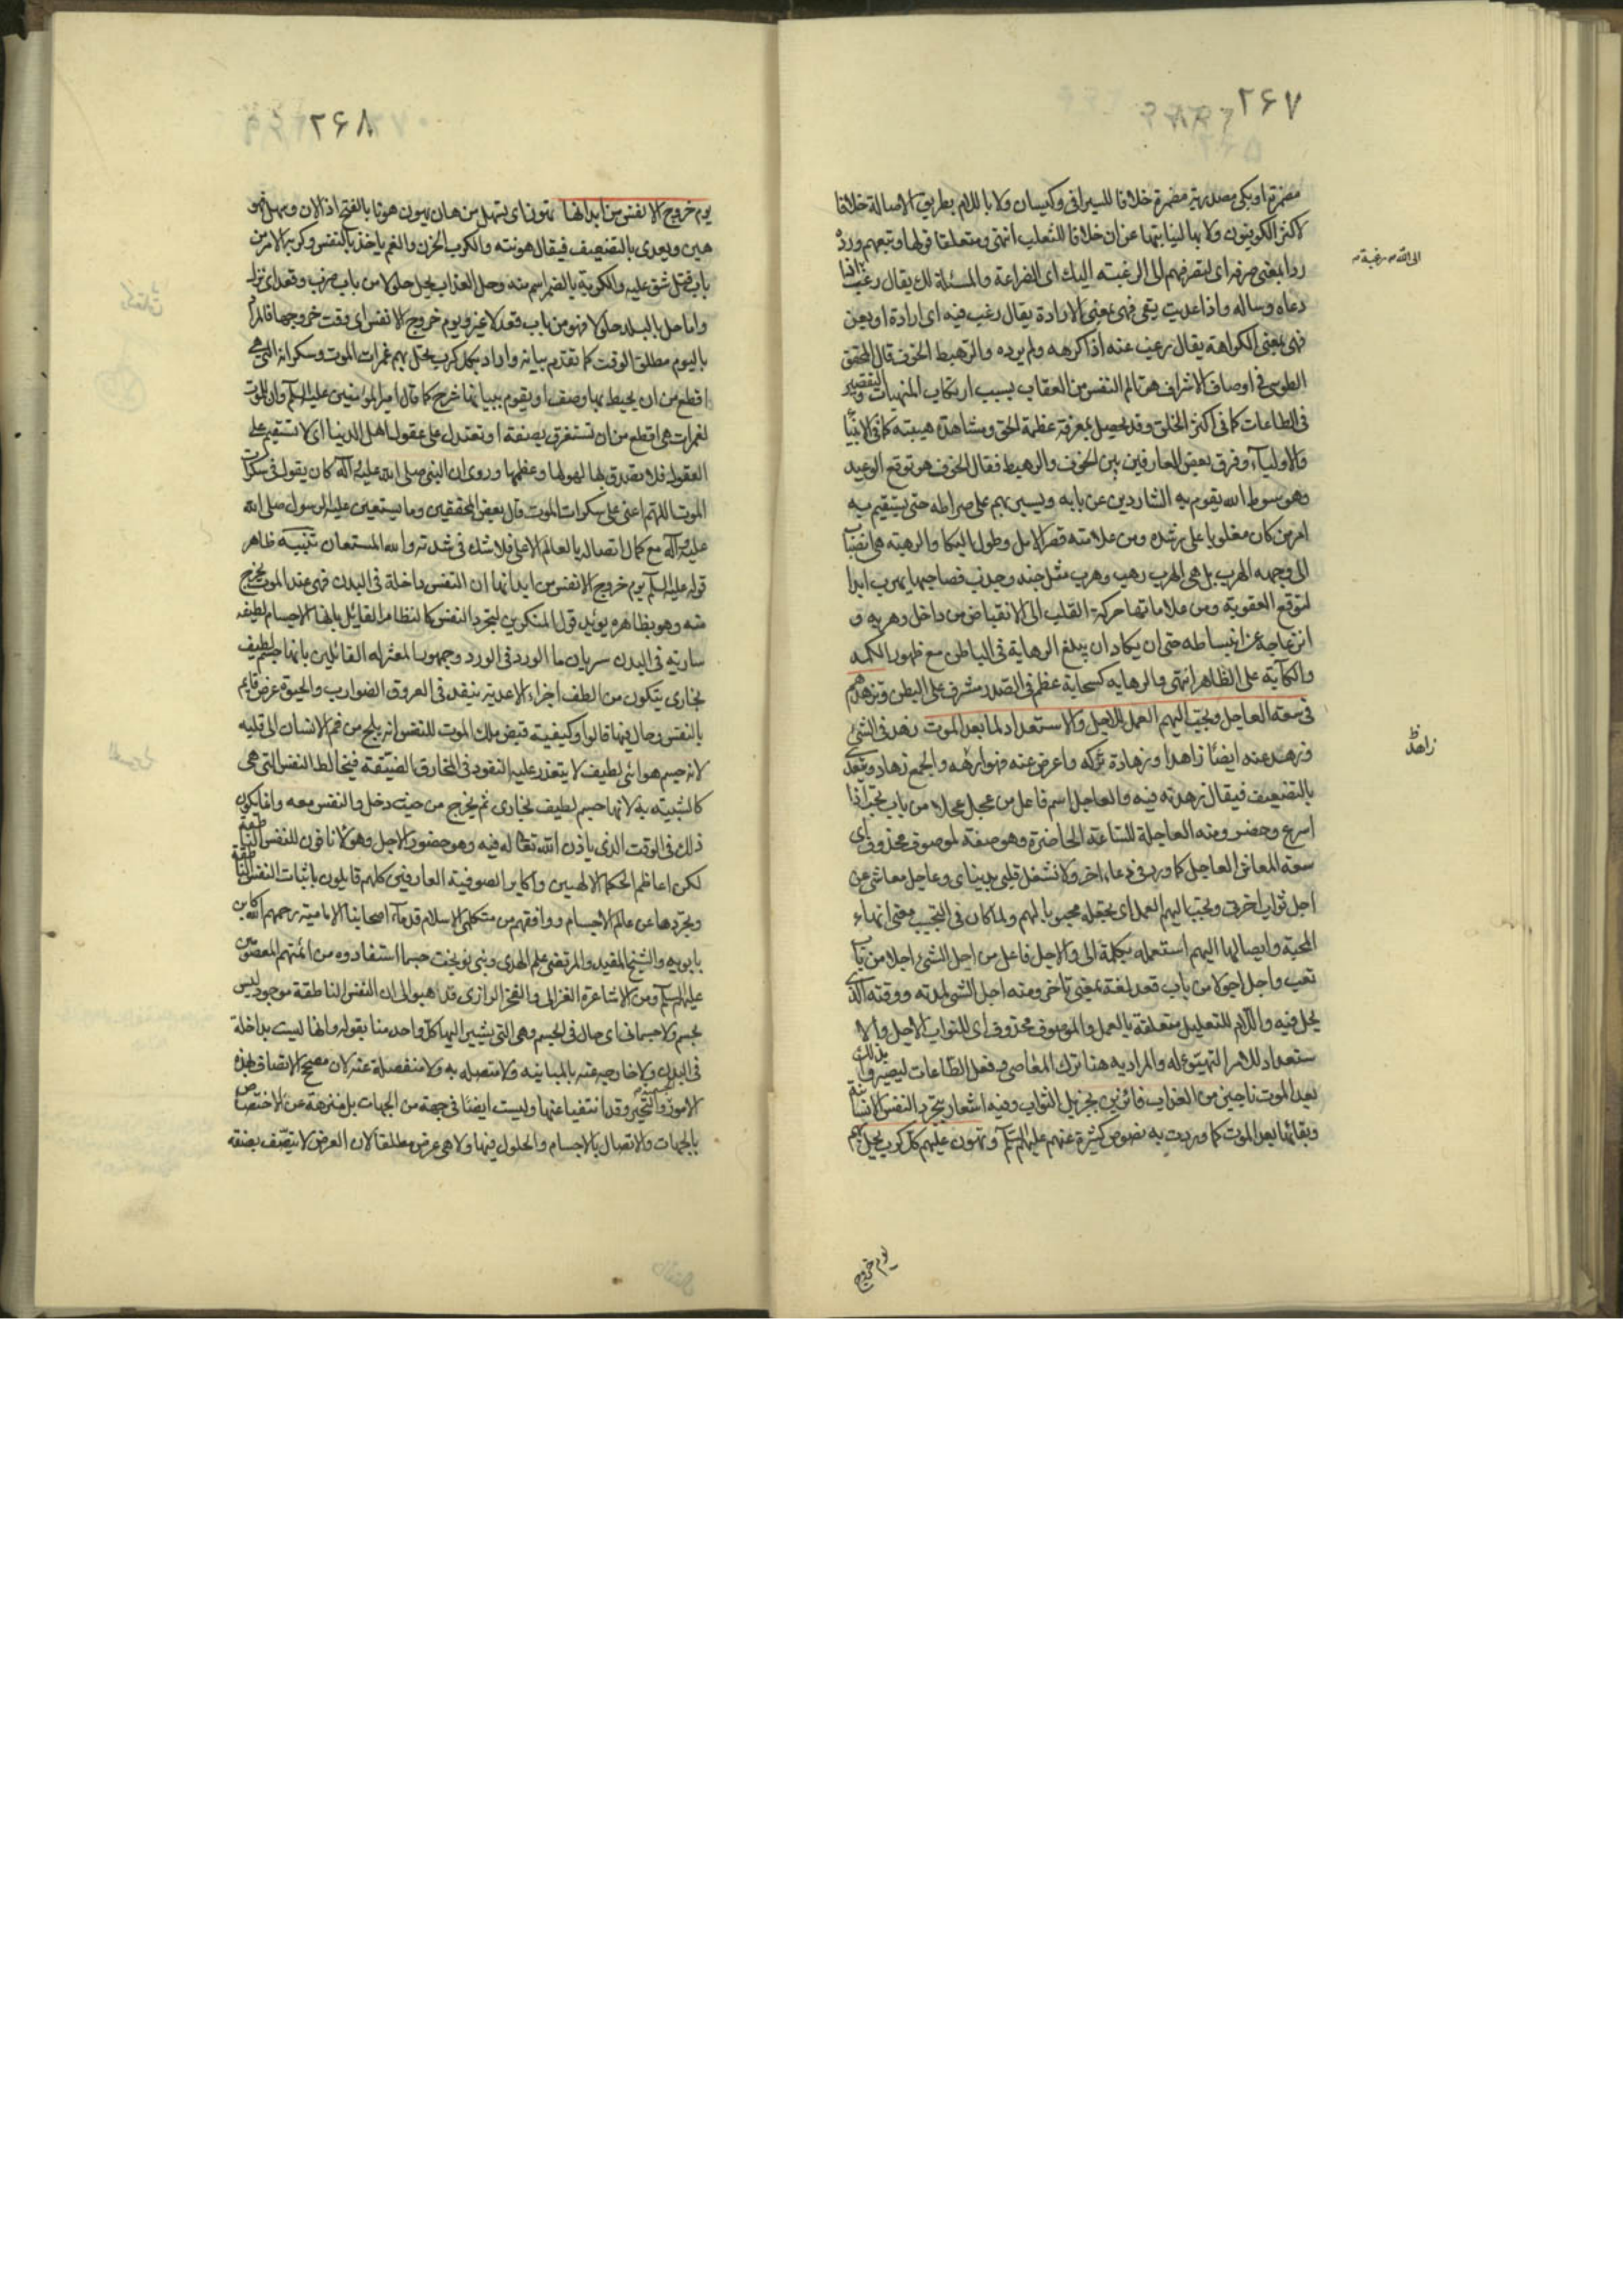 ۲۶۷
مضمرة او بكی مصدرية مضمرة خلافا للسيرافی وكيسان ولا باللام بطريق الاصالة خلافا
لاكثر الكوفيون ولا بها لنيابتها عن ان خلافا للثعلب انتهى ومتعلقا قولها وتبعهم ورده
ردا بمعنى صرفه ای لتصرفهم الى الرغبته اليك ای الضراعة والمسئلة لك يقال رغب
الى الله رغبة
دعاه وساله واذا عديت بفى فهى بمعنى الارادة يقال رغب فيه ای ارادة او بعن
فهى بمعنى الكراهة يقال رغب عنه اذا كرهه ولم يرده والرهبة الخوف قال المحقق
الطوسى فى اوصاف الاشراف هو تالم النفس من العقاب بسبب ارتكاب المنهيات والتقصير
فى الطاعات كما فى اكثر الخلق وقد يحصل بمعرفة عظمة الحق ومشاهدة هيبته كما فى الانبيا
والاولياء وفرق بعض العارفين بين الخوف والرهبة فقال الخوف هو توقع الوعيد
وهو سوط الله يقوم به الشاردين عن بابه ويسير بهم على صراطه حتى يستقيم به
امر من كان مغلوبا على رشده ومن علامته قصر الامل وطول البكا والرهبته هى انصباب
الى وجهه الهرب بل هى الهرب رهب وهرب مثل جبذ وجذب فصاحبها يهرب ابدا
لتوقع العقوبة ومن علاماتها حركة القلب الى الانقباض من داخل وهربه و
انزعاجه عن انبساطه حتى ان يكاد ان يبلغ الرهابة فى الباطن مع ظهور الكمد
والكآبة على الظاهر انتهى والرهابه كسحابة عظم فى الصدر مشرف على البطن وتزهدهم
فى سعة العاجل وتحبب اليهم العمل للاجل والاستعداد لما بعد الموت زهد فى الشئ
زاهد
وزهد عنه ايضًا زاهدا وزهادة تركه واعرض عنه فهو زاهد والجمع زهاد ويتعدى
بالتضعيف فيقال زهدته فيه والعاجل اسم فاعل من عجل عجلا من باب تعب اذا
اسرع وحضر ومنه العاجلة للساعة الحاضرة وهو صفة لموصوف محذوف ای
سعة المعاش العاجل كما ورد فى دعاء اخر ولا تشغل قلبى بدنيای وعاجل معاشى عن
اجل ثواب اخرتى وتحبب اليهم العمل ای تجعله محبوبا لهم ولما كان فى التحبيب معنى انهاء
المحبة وايصالها اليهم استعمله بكلمة الى والاجل فاعل من اجل الشئ اجلا من باب
تعب واجل اجولا من باب قعد لغة بمعنى تاخر ومنه اجل الشئ لمدته ووقته الذى
يحل فيه واللام للتعليل متعلقة بالعمل والموصوف محذوف ای للثواب الاجل والا
ستعداد للامر التهيئو له والمراد به هنا ترك المعاصى وفعل الطاعات ليصيروا بذلك
بعد الموت ناجين من العذاب فائزين بجزيل الثواب وفيه اشعار بتجرد النفس الانسانية
وبقائها بعد الموت كما وردت به نصوص كثيرة عنهم عليهم السلم وتهون عليهم كل كرب يحل بهم
يوم خروج
۲۶۸
يوم خروج الانفس من ابدانها تهون ای تسهل من هان يهون هونا بالفتح اذا لان وسهل فهو
هين ويعدى بالتضعيف فيقال هونته والكرب الحزن والغم ياخذ بالنفس وكربه الامر من
باب قتل شق عليه والكربة بالضم اسم منه وحل العذاب يحل حلولا من باب ضرب وقعد ای نزل
واما حل بالبلد حلولا فهو من باب قعد لا غير ويوم خروج الانفس ای وقت خروجها فالمراد
باليوم مطلق الوقت كما تقدم بيانه واراد بكل كرب يحل بهم غمرات الموت وسكراته التى هى
افظع من ان يحيط بها وصف او يقوم ببيانها شرح كما قال امير المؤمنين عليه السلم وان للموت
لغمرات هى افظع من ان تستغرق بصفة او تعتدل على عقول اهل الدنيا ای لا تستقيم على
العقول فلا تصدق بها لهولها وعظمها وروى ان النبى صلى الله عليه وآله كان يقول فى سكرات
الموت اللهم اعنى على سكرات الموت قال بعض المحققين وما يستعين عليه الرسول صلى الله
عليه وآله مع كمال اتصاله بالعالم الاعلى فلا شك فى شدته والله المستعان تنبيه ظاهر
قوله عليه السلم يوم خروج الانفس من ابدانها ان النفس داخلة فى البدن فهى عند الموت تخرج
منه وهو بظاهره يؤيد قول المنكرين لتجرد النفس كالنظام القائل بانها الاجسام لطيفه
سارية فى البدن سريان ماالورد فى الورد وجمهور المعتزله القائلين بانها جسم لطيف
بخاری يتكون من الطف اجزاء الاغدية ينفد فى العروق الضوارب والحيوة عرض قايم
بالنفس وحال فيها قالوا وكيفية قبض ملك الموت للنفس انه يلج من فم الانسان الى قلبه
لانه جسم هوائى لطيف لا يتعذر عليه النفود فى المخارق الضيقة فيخالط النفس التى هى
كالشبيه به لانها جسم لطيف بخاری ثم يخرج من حيث دخل والنفس معه وانما يكون
ذلك فى الوقت الذى ياذن الله تعالى له فيه وهو حضور الاجل وهؤلا نافون للنفس الناطقة
لكن اعاظم الحكما الالهيين واكابر الصوفية العارفين كلهم قايلون باثبات النفس الناطقة
وتجردها عن عالم الاجسام ووافقهم من متكلمى الاسلام قدماء اصحابنا الامامية رحمهم الله كابن
بابويه والشيخ المفيد والمرتضى علم الهدى وبنى نوبخت حسبما استفادوه من ائمتهم المعصومين
عليهم السلم ومن الاشاعرة الغزالى والفخر الرازى فذهبوا الى ان النفس الناطقة موجود ليس
بجسم ولا جسمانى ای حال فى الجسم وهى التى يشير اليها كل واحد منا بقوله وانها ليست بداخلة
فى البدن ولا خارجة عنه بالمباينه ولا متصله به ولا منفصلة عنه لان مصحح الاتصاف بهذه
الامور الجسمية والتحيز وقد انتفيا عنها وليست ايضًا فى جهة من الجهات بل منزهة عن الاختصاص
بالجهات والاتصال بالاجسام والحلول فيها ولا هى عرض مطلقا لان العرض لا يتصف بصفة